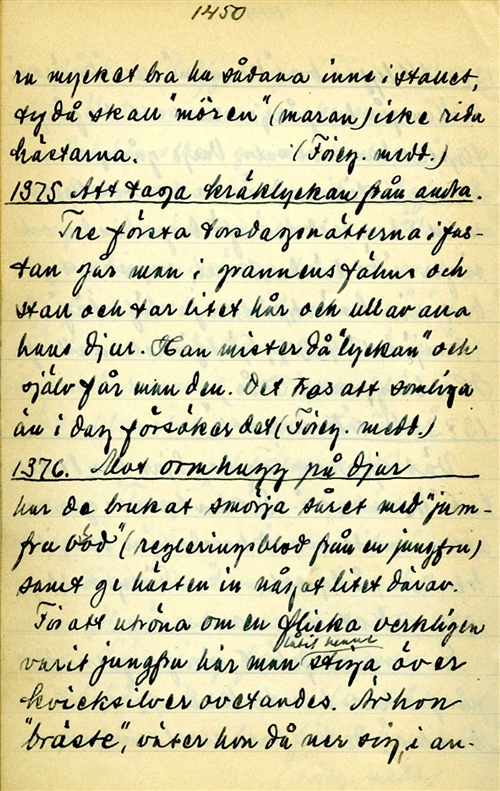 1450
ra mycket bra ha sådana inne i stallet,
ty då skall "mören" (maran) icke rida
hästarna. (Förey. medd.)
1375 Att taga kräklyckan från andra.
Tre första torsdagsnätterna i fas-
tan går man i grannens fähus och
stall och tar litet hår och ull av alla
hans djur. Han mister då "lyckan" och
själv får man den. Det tros att somliga
än i dag försöker det (Förey. medd.)
1376. Mot ormhugg på djur
har de brukat smörja såret med "jum-
fru blod" (regleringsblod från en jungfru)
samt ge hästen in något litet därav.
För att utröna om en flicka verkligen
låtit henne
varit jungfru har man stiga över
kvicksilver ovetandes. Är hon
"bräste", väter hon då ner sig, i an-